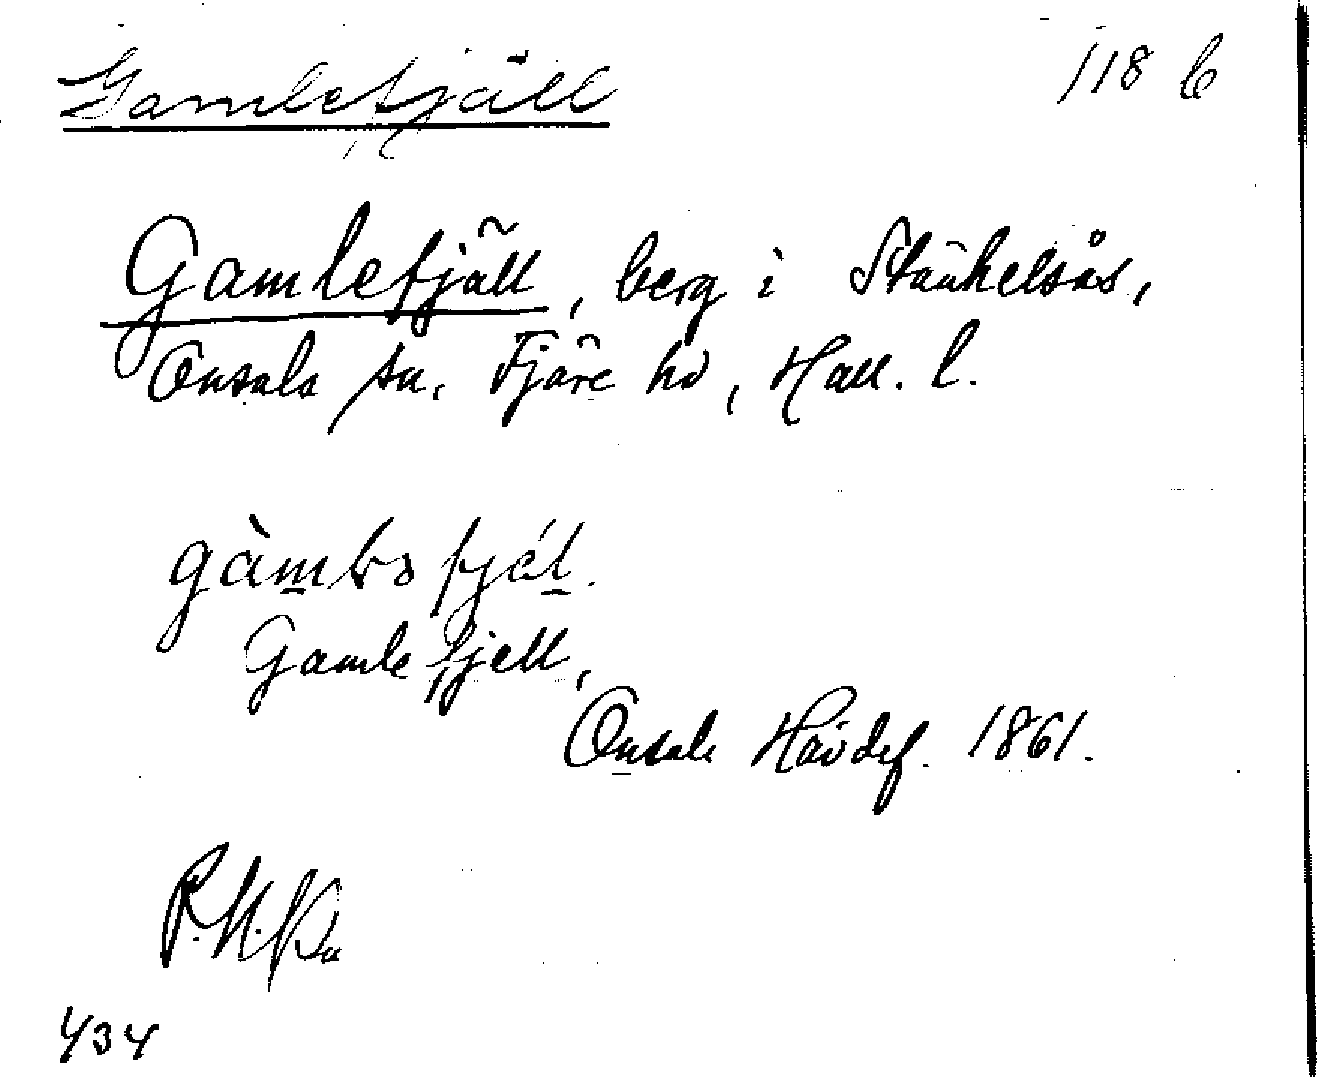 Gamlefjäll 118 b
Gamlefjäll, berg i Stäckelsås,
Onsala sn. Fjäre hd, Hall. l.
Gamle fjell,
Onsala Hävdef. 1861.
434